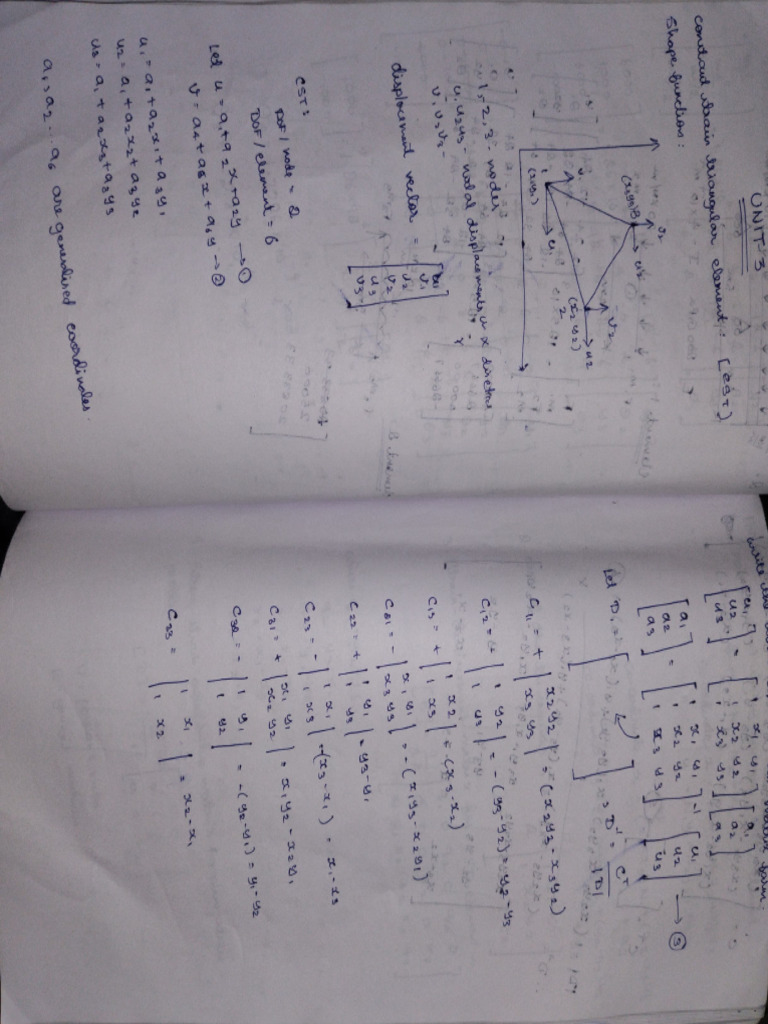 UNIT-3
constant strain triangular element: [CST)
Shape function:
v3
(x3 y3) 3
u3
v1
1
(x1 y1)
u1
v2
(x2 y2)
2
u2
1, 2, 3 - nodes
u1 u2 u3 - nodal displacements in x direction
v1 v2 v3 - " " Y
displacement vector =
u1
v1
u2
v2
u3
v3
CST:
DOF / node = 2
DOF / element = 6
Let u = a1 + a2x + a3y → ①
v = a4 + a5x + a6y → ②
u1 = a1 + a2x1 + a3y1
u2 = a1 + a2x2 + a3y2
u3 = a1 + a2x3 + a3y3
a1, a2 ... a6 are generalized coordinates.
write the matrix form:
[u1 u2 u3] = [1 x1 y1 1 x2 y2 1 x3 y3] [a1 a2 a3]
[a1 a2 a3] = [1 x1 y1 1 x2 y2 1 x3 y3]-1 [u1 u2 u3] → ③
Let D = [ ] ⇒ D-1 = CT / |D|
C11 = + |x2 y2 x3 y3| = (x2y3 - x3y2)
C12 = - |1 y2 1 y3| = -(y3-y2) = y2 - y3
C13 = + |1 x2 1 x3| = (x3-x2)
C21 = - |x1 y1 x3 y3| = -(x1y3 - x3y1)
C22 = + |1 y1 1 y3| = y3-y1
C23 = - |1 x1 1 x3| = -(x3-x1) = x1-x3
C31 = + |x1 y1 x2 y2| = x1y2 - x2y1
C32 = - |1 y1 1 y2| = -(y2-y1) = y1-y2
C33 = |1 x1 1 x2| = x2-x1